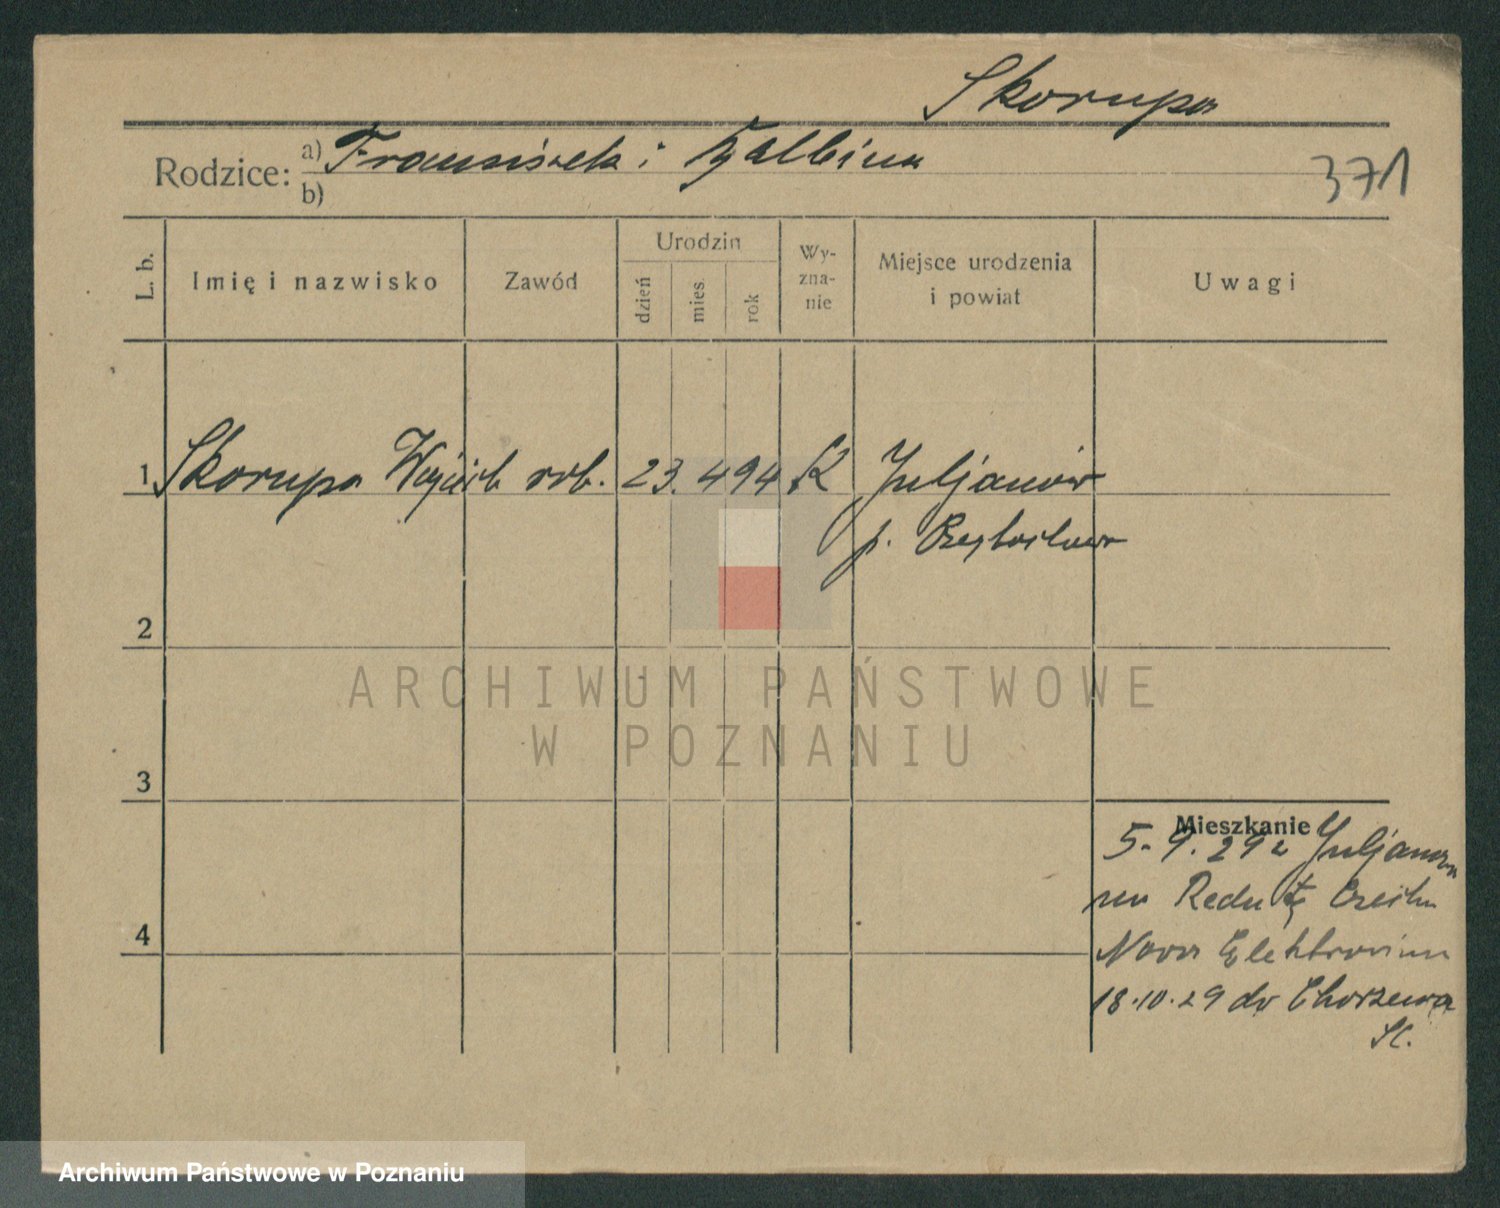 Skorupa
Rodzice: a) Franciszek i Balbina
b)
371
L. b.
Imię i nazwisko
Zawód
Urodzin
dzień
mies.
rok
Wy-
zna-
nie
Miejsce urodzenia
i powiat
Uwagi
1 Skorupa Wojciech rob. 23. 4 94 K Juljanów
p. Częstochowa
2
3
4
Mieszkanie
5.9.29 z Juljanowa
na Redutę
18.10.29 do Chorzewa
ARCHIWUM PAŃSTWOWE
W POZNANIU
Archiwum Państwowe w Poznaniu